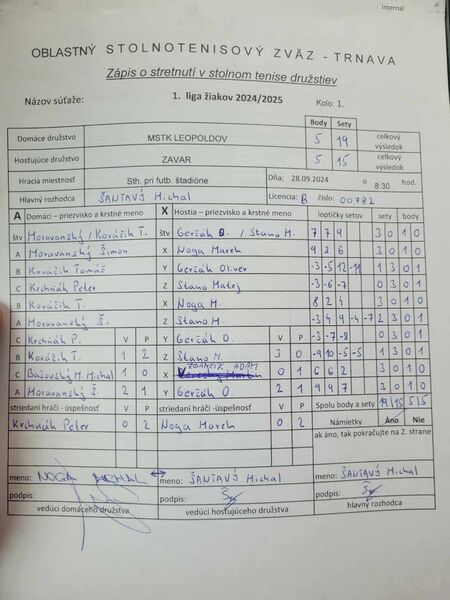 Internal
OBLASTNÝ STOLNOTENISOVÝ ZVÄZ - TRNAVA
Zápis o stretnutí v stolnom tenise družstiev
Názov súťaže: 1. liga žiakov 2024/2025 Kolo: 1.
Body Sety
Domáce družstvo MSTK LEOPOLDOV 5 19 celkový výsledok
Hosťujúce družstvo ZAVAR 5 15 celkový výsledok
Hracia miestnosť Sth. pri futb. štadióne Dňa: 28.09.2024 o 8:30 hod.
Hlavný rozhodca ŠANTAVÝ Michal Licencia: B číslo: 00782
A Domáci – priezvisko a krstné meno X Hostia – priezvisko a krstné meno loptičky setov sety body
štv Moravanský / Kováčik T. štv Gerčák O. / Stano M. 7 7 9 3 0 1 0
A Moravanský Šimon X Noga Marek 9 2 6 3 0 1 0
B Kováčik Tomáš Y Gerčák Oliver -3 -5 12 -11 1 3 0 1
C Krchnák Peter Z Stano Matej -3 -6 -7 0 3 0 1
B Kováčik T. X Noga M. 8 2 4 3 0 1 0
A Moravanský Š. Z Stano M. -3 4 9 -4 -7 2 3 0 1
C Krchnák P. V P Y Gerčák O. V P -3 -7 -8 0 3 0 1
B Kováčik T. 1 2 Z Stano M. 3 0 -9 10 -5 -5 1 3 0 1
C Bašovský M. Michal 1 0 X ADAM 0 1 6 6 2 3 0 1 0
A Moravanský Š. 2 1 Y Gerčák O. 2 1 9 9 7 3 0 1 0
striedaní hráči - úspešnosť V P striedaní hráči - úspešnosť V P Spolu body a sety 19 15 5 5
Krchnák Peter 0 2 Noga Marek 0 2 Námietky Áno Nie
ak áno, tak pokračujte na 2. strane
meno: NOGA meno: ŠANTAVÝ Michal meno: ŠANTAVÝ Michal
podpis: podpis: podpis:
vedúci domáceho družstva vedúci hosťujúceho družstva hlavný rozhodca